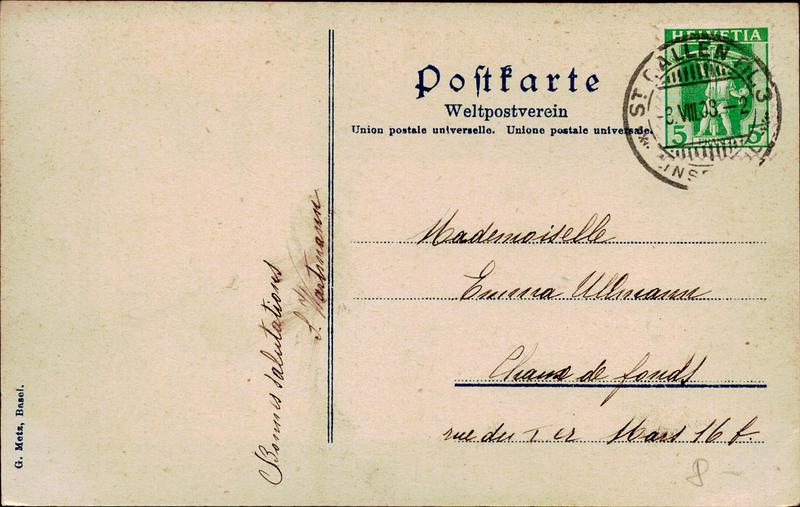 Postkarte
Weltpostverein
Union postale universelle. Unione postale universale.
HELVETIA
5
5
ST. GALLEN
VIII.08.–2
Mademoiselle
Emma Ullmann
Chaux de fonds
rue du 1 er Mars 16 f.
Bonnes salutations
Hartmann
G. Metz, Basel.
8 –